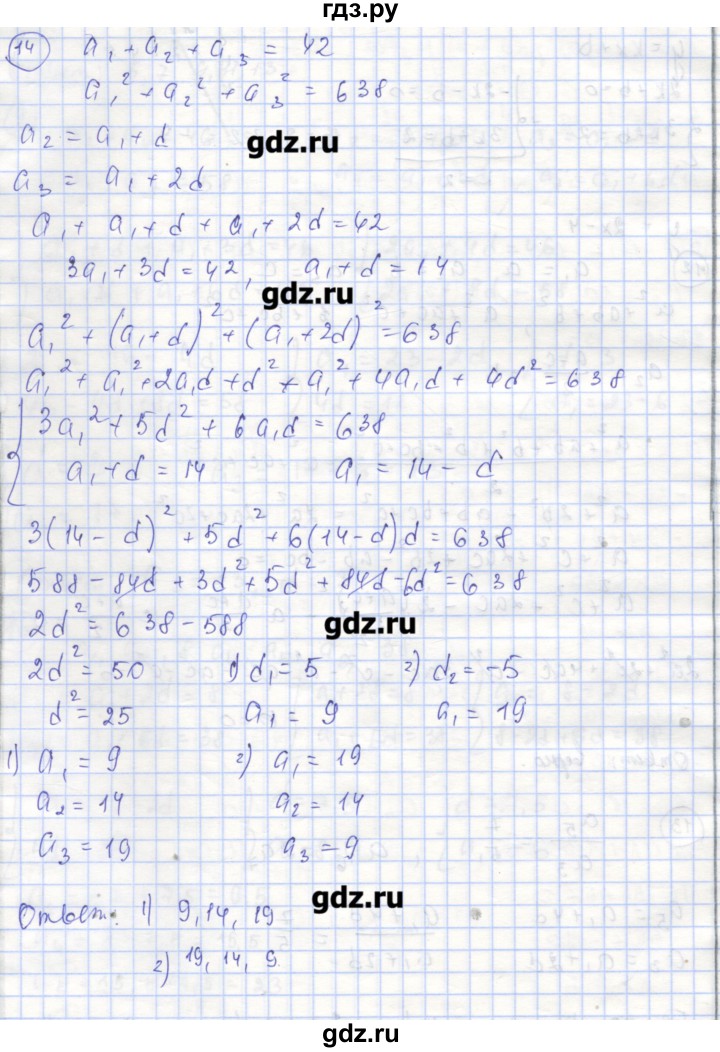 гдз.ру
14 a₁ + a₂ + a₃ = 42
a₁² + a₂² + a₃² = 638
a₂ = a₁ + d
gdz.ru
a₃ = a₁ + 2d
a₁ + a₁ + d + a₁ + 2d = 42
3a₁ + 3d = 42, a₁ + d = 14
gdz.ru
a₁² + (a₁ + d)² + (a₁ + 2d)² = 638
a₁² + a₁² + 2a₁d + d² + a₁² + 4a₁d + 4d² = 638
3a₁² + 5d² + 6a₁d = 638
a₁ + d = 14 a₁ = 14 - d
3(14 - d)² + 5d² + 6(14 - d)d = 638
588 - 84d + 3d² + 5d² + 84d - 6d² = 638
2d² = 638 - 588
gdz.ru
2d² = 50 1) d₁ = 5 2) d₂ = -5
d² = 25 a₁ = 9 a₁ = 19
1) a₁ = 9 2) a₁ = 19
a₂ = 14 a₂ = 14
a₃ = 19 a₃ = 9
gdz.ru
Ответ: 1) 9, 14, 19
2) 19, 14, 9
gdz.ru